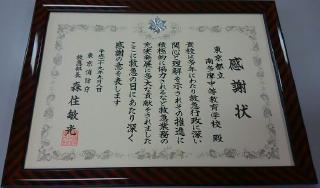 感謝状
東京都立
南多摩中等教育学校 殿
貴校は多年にわたり救急行政に深い
関心と理解を示されその推進に
積極的に協力されるなど救急業務の
充実発展に多大な貢献をされました
ここに救急の日にあたり深く
感謝の意を表します
平成二十七年九月八日
東京消防庁
救急部長 森住敏光